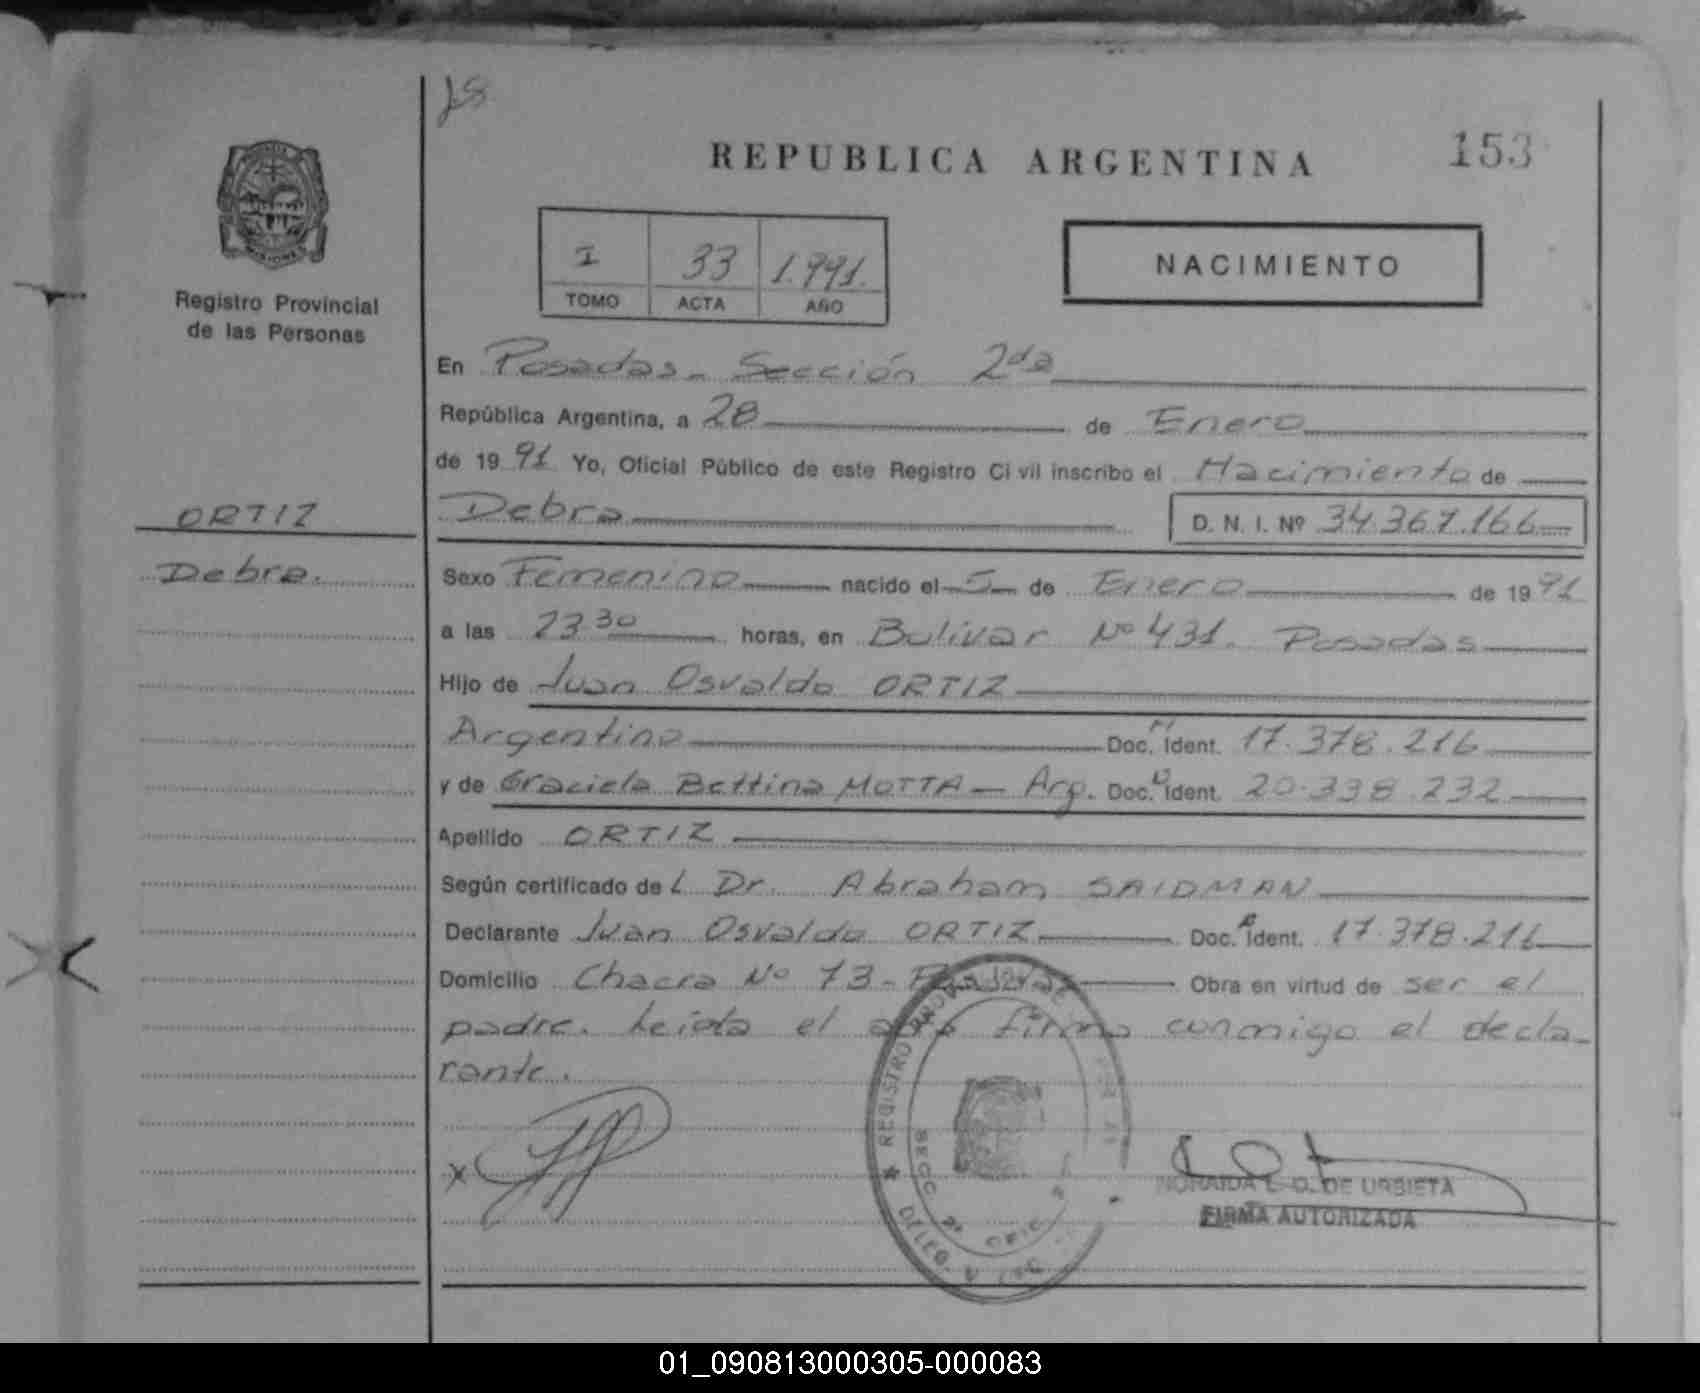 153
REPUBLICA ARGENTINA
MISIONES
Registro Provincial
de las Personas
I 33 1.991.
TOMO ACTA AÑO
NACIMIENTO
En Posadas - Sección 2da
República Argentina, a 28 de Enero
de 1991 Yo, Oficial Público de este Registro Civil inscribo el Nacimiento de
Debra D. N. I. Nº 34.367.166
ORTIZ
Debra.
Sexo Femenino nacido el 5 de Enero de 1991
a las 23 30 horas, en Bolivar Nº 431. Posadas
Hijo de Juan Osvaldo ORTIZ
Argentino Doc. Ident. 17.378.216
y de Graciela Bettina MOTTA - Arg. Doc. Ident. 20.338.232
Apellido ORTIZ
Según certificado de l Dr. Abraham SAIDMAN
Declarante Juan Osvaldo ORTIZ Doc. Ident. 17.378.216
Domicilio Chacra Nº 73 - Posadas Obra en virtud de ser el
padre. Leída el acta firma conmigo el decla-
rante.
REGISTRO PROV. DE
SECC 2ª
NORAIDA L. O. DE URBIETA
FIRMA AUTORIZADA
01_090813000305-000083